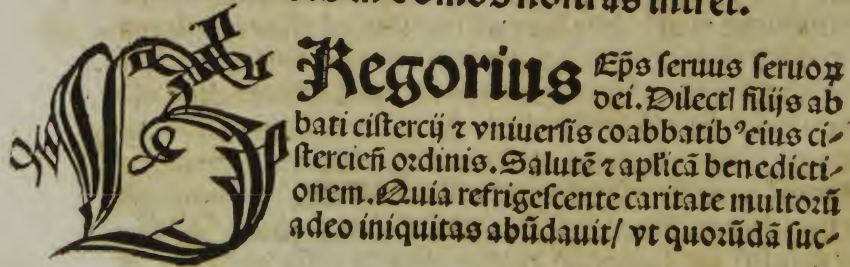 in domos nostras intret.
GRegorius Ep̄s seruus seruoꝝ
dei. Dilectl filijs ab
bati cistercij ⁊ vniuersis coabbatibꝰ eius ci⸗
stercieñ ordinis. Salutē ⁊ apl̓icā benedicti⸗
onem. Quia refrigescente caritate multorū
adeo iniquitas abūdauit/ vt quorūdā suc⸗